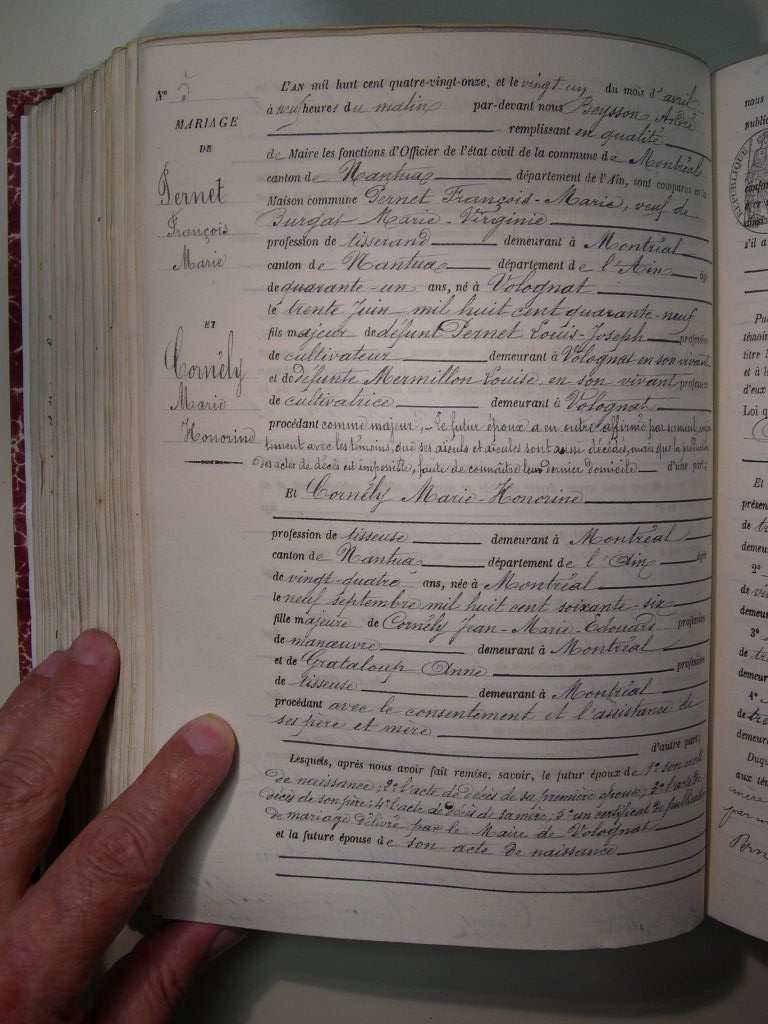 N° 5
MARIAGE
DE
Pernet
François
Marie
ET
Cornély
Marie
Honorine
L'AN mil huit cent quatre-vingt-onze, et le vingt un du mois d'avril
à neuf heures du matin par-devant nous Beysson André
remplissant en qualité
de Maire les fonctions d'Officier de l'état civil de la commune de Montréal
canton de Nantua département de l'Ain, sont comparus en la
Maison commune Pernet François-Marie, veuf de
Burgat Marie-Virginie
profession de tisserand demeurant à Montréal
canton de Nantua département de l'Ain âgé
de quarante-un ans, né à Volognat
le trente Juin mil huit cent quarante-neuf
fils majeur de défunt Pernet Louis-Joseph profession
de cultivateur demeurant à Volognat en son vivant
et de défunte Mermillon Louise, en son vivant profession
de cultivatrice demeurant à Volognat
procédant comme majeur, - Le futur époux a en outre affirmé par serment, con-
tiement avec les témoins, que ses aieuls et aieules sont aussi décédés, mais que la production
des actes de décès est impossible, faute de connaître leur dernier domicile d'une part;
Et Cornély Marie-Honorine
profession de tisseuse demeurant à Montréal
canton de Nantua département de l'Ain âgée
de vingt-quatre ans, née à Montréal
le neuf septembre mil huit cent soixante-six
fille majeure de Cornély Jean-Marie-Edouard profession
de manœuvre demeurant à Montréal
et de Grataloup Anne profession
de tisseuse demeurant à Montréal
procédant avec le consentement et l'assistance de
ses père et mère
d'autre part;
Lesquels, après nous avoir fait remise, savoir, le futur époux de 1° son acte
de naissance; 2° l'acte de décès de sa première épouse; 3° l'acte de
décès de son père; 4° l'acte de décès de sa mère; 5° un certificat de publication
de mariage délivré par le Maire de Volognat
et la future épouse de son acte de naissance
nous
public
REPUBLIQUE
s'il a
témoin
titre
et à l
d'eux
Loi q
Et
présen
de
demeu
2°
de
demeu
3°
de
demeur
4°
de
demeura
Duqu
aux tém
mère
par
Pern